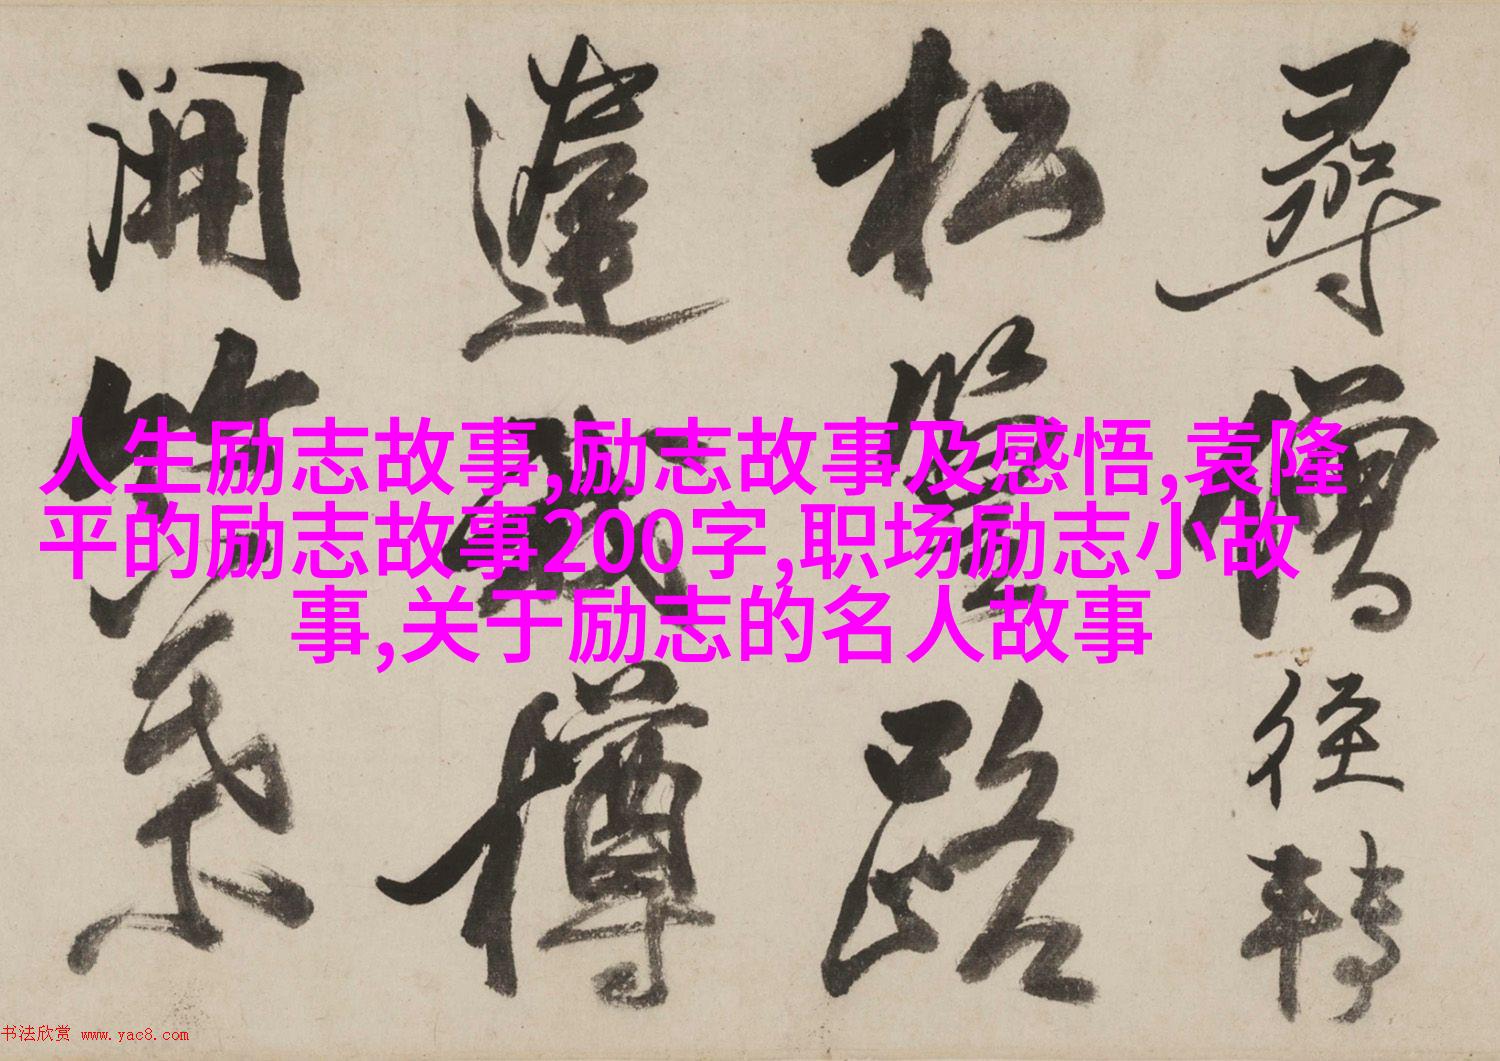 尋僧徑轉
松路
樽
開
人生励志故事,励志故事及感悟,袁隆
平的励志故事200字,职场励志小故
事,关于励志的名人故事
书法欣赏 www.yac8.com